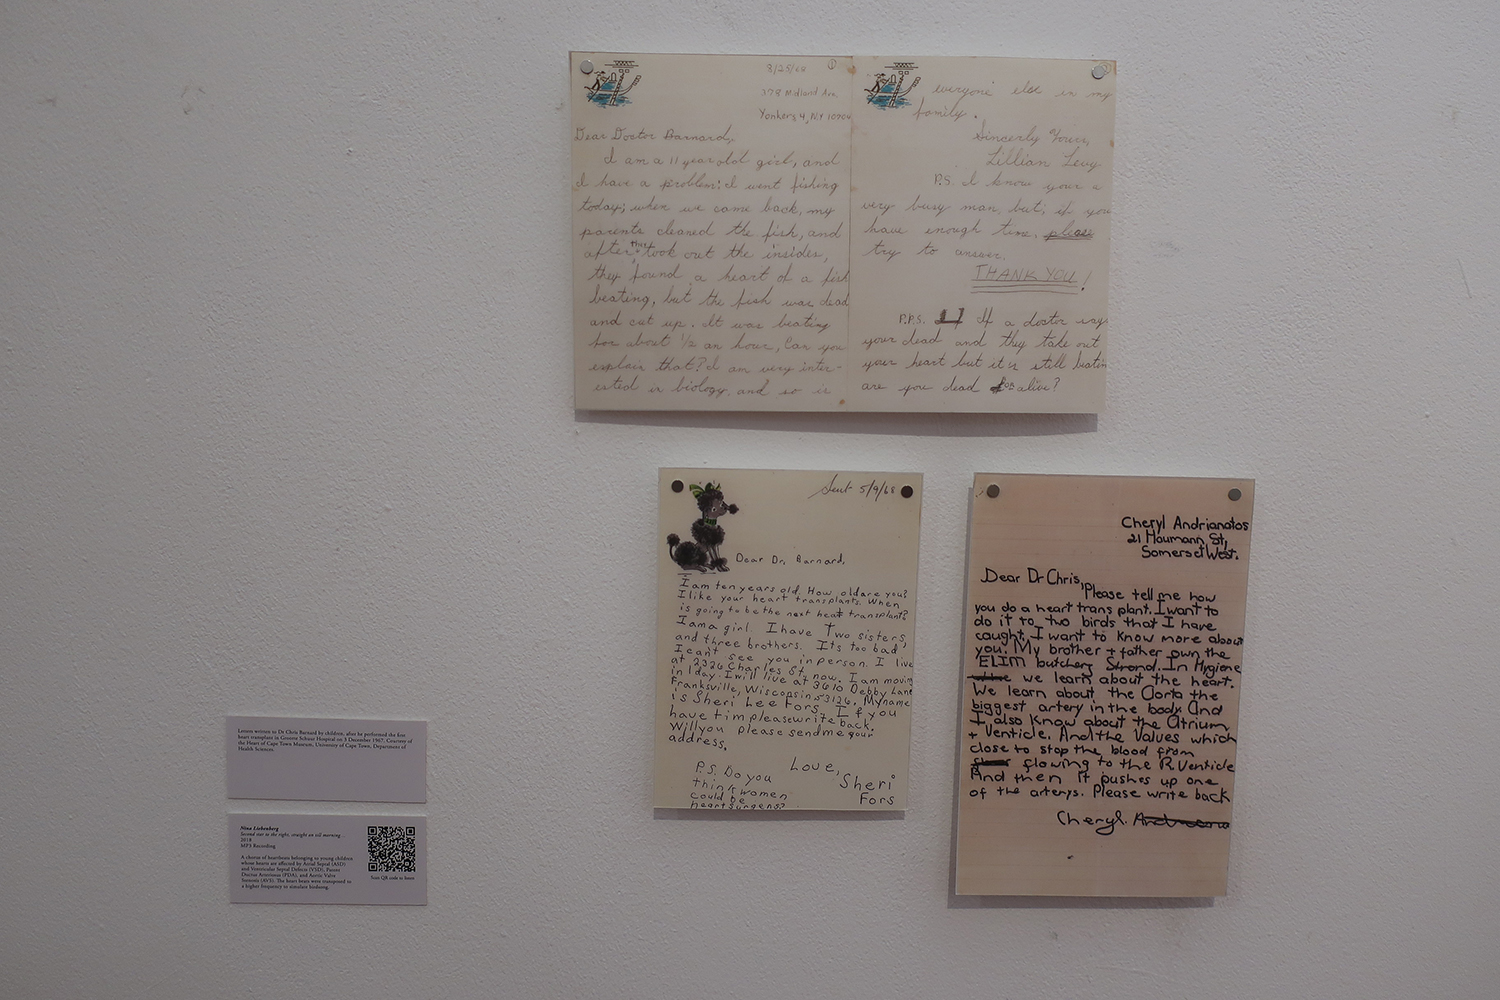 8/25/68
379 Midland Ave.
Yonkers 4, N.Y 10704
Dear Doctor Barnard,
I am a 11 year old girl, and
I have a problem: I went fishing
today; when we came back, my
parents cleaned the fish, and
after they took out the insides,
they found a heart of a fish
beating, but the fish was dead
and cut up. It was beating
for about 1/2 an hour, Can you
explain that? I am very inter-
ested in biology, and so is
everyone else in my
family.
Sincerely Yours,
Lillian Levy
P.S. I know your a
very busy man, but, if you
have enough time, please
try to answer.
THANK YOU!
P.P.S. If a doctor says
your dead and they take out
your heart but it is still beatin
are you dead or alive?
Sent 5/9/68
Dear Dr. Barnard,
I am ten years old. How old are you?
I like your heart transplants. When
is going to be the next heat transplant?
I am a girl. I have Two sisters,
and three brothers. Its too bad
I can't see you in person. I live
at 2326 Charles St. now. I am moving
in 1 day. I will live at 3610 Debby Lane
Franksville, Wisconsin 53126. My name
is Sheri Lee Fors. If you
have tim please write back.
Will you please send me your
address.
Love,
Sheri
Fors
P.S. Do you
think women
could be
heart surgens?
Cheryl Andrianatos
21 Houmann St,
Somerset West.
Dear Dr Chris,
Please tell me how
you do a heart trans plant. I want to
do it to two birds that I have
caught. I want to know more about
you. My brother + father own the
ELIM butchery Strand. In Hygiene
we learn about the heart.
We learn about the Aorta the
biggest artery in the body. And
I also know about the Atrium
+ Venticle. And the Valves which
close to stop the blood from
flowing to the R. Venticle
And then it pushes up one
of the arterys. Please write back
Cheryl.
Letters written to Dr Chris Barnard by children, after he performed the first
heart transplant in Groote Schuur Hospital on 3 December 1967. Courtesy of
the Heart of Cape Town Museum, University of Cape Town, Department of
Health Sciences
Nina Liebenberg
Second star to the right, straight on till morning...
2018
MP3 Recording
A chorus of heartbeats belonging to young children
whose hearts are affected by Atrial Septal (ASD)
and Ventricular Septal Defects (VSD), Patent
Ductus Arteriosus (PDA), and Aortic Valve
Stenosis (AVS). The heart beats were transposed to
a higher frequency to simulate birdsong.
Scan QR code to listen